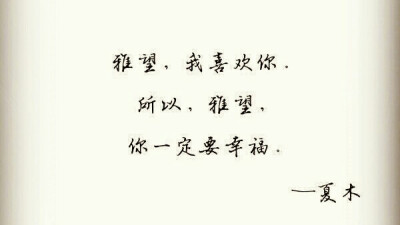 雅望，我喜欢你.
所以，雅望，
你一定要幸福.
—夏木